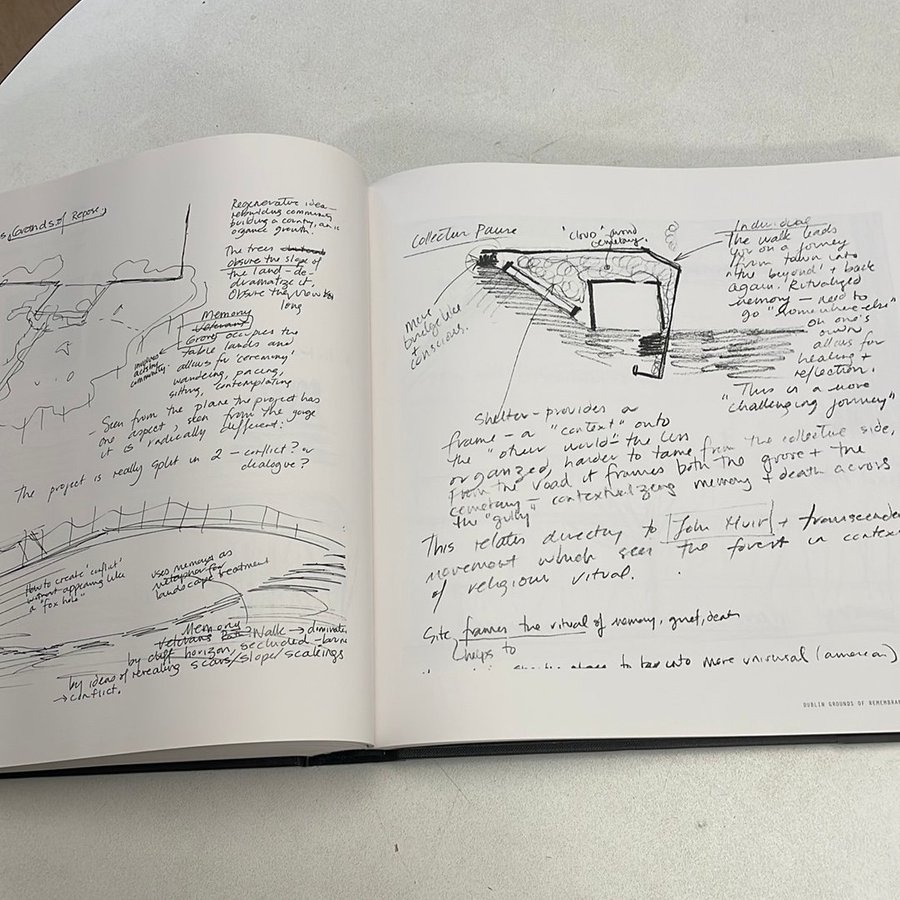 Grounds of Repose
Regenerative idea –
rebuilding community,
building a country,
organic growth.
The trees
obsure the slope of
the land – de-
dramatize it.
Obsure the view
long
Memory
Veterans
Grove occupies the
table lands and
allows for 'ceremony'
wandering, pacing,
sitting, contemplating
community.
– Seen from the plane the project has
one aspect, seen from the gorge
it is radically different.
The project is really split in 2 – conflict? or
dialogue?
How to create 'conflict'
without appearing like
a "fox hole"
uses memory as
metaphor for
landscape treatment
Memory
Veterans Path: Walk → diminates
by cliff horizon, secluded –
by ideas of revealing scars/slope/scaleings
→ conflict.
Collective Pause
'cloud' around
cemetary.
More
bridge like
+
conscious.
Individual
The walk leads
you on a journey
from taken into
"the beyond" + back
again. Ritualized
memory – need to
go "somewhere else"
on one's
own
allows for
healing +
reflection.
"This is a more
challenging journey"
Shelter – provides a
frame – a "context" onto
the "other world" – the less
organized, harder to tame from the collective side,
From the road it frames both the grove + the
cemetary – contextualizing memory + death across
the "gully"
This relates directly to John Muir + transcenden
movement which sees the forest in contex
of religious ritual.
Site frames the ritual of memory, grief, death
helps to
place to tap into more universal (american)
DUBLIN GROUNDS OF REMEMBRAN